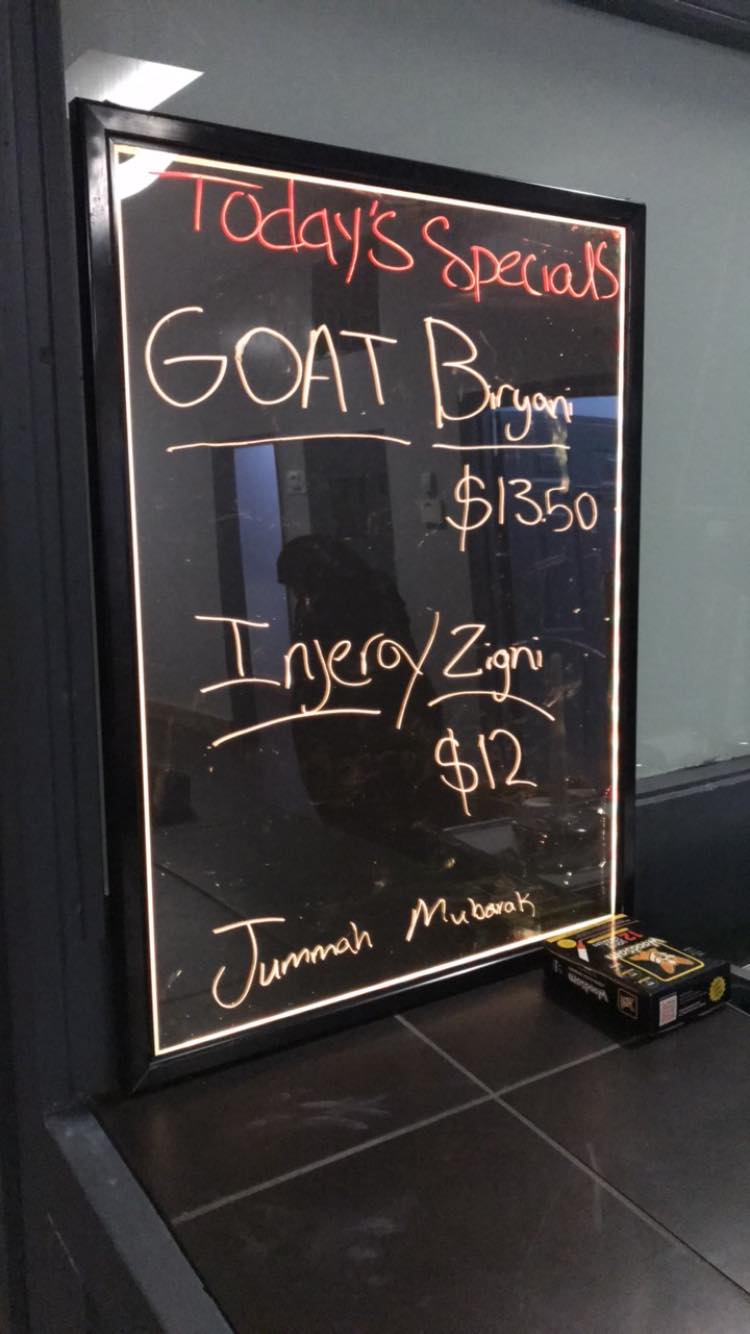 Today's Specials
GOAT Biryani
$13.50
Injera/Zigni
$12
Jummah Mubarak
12